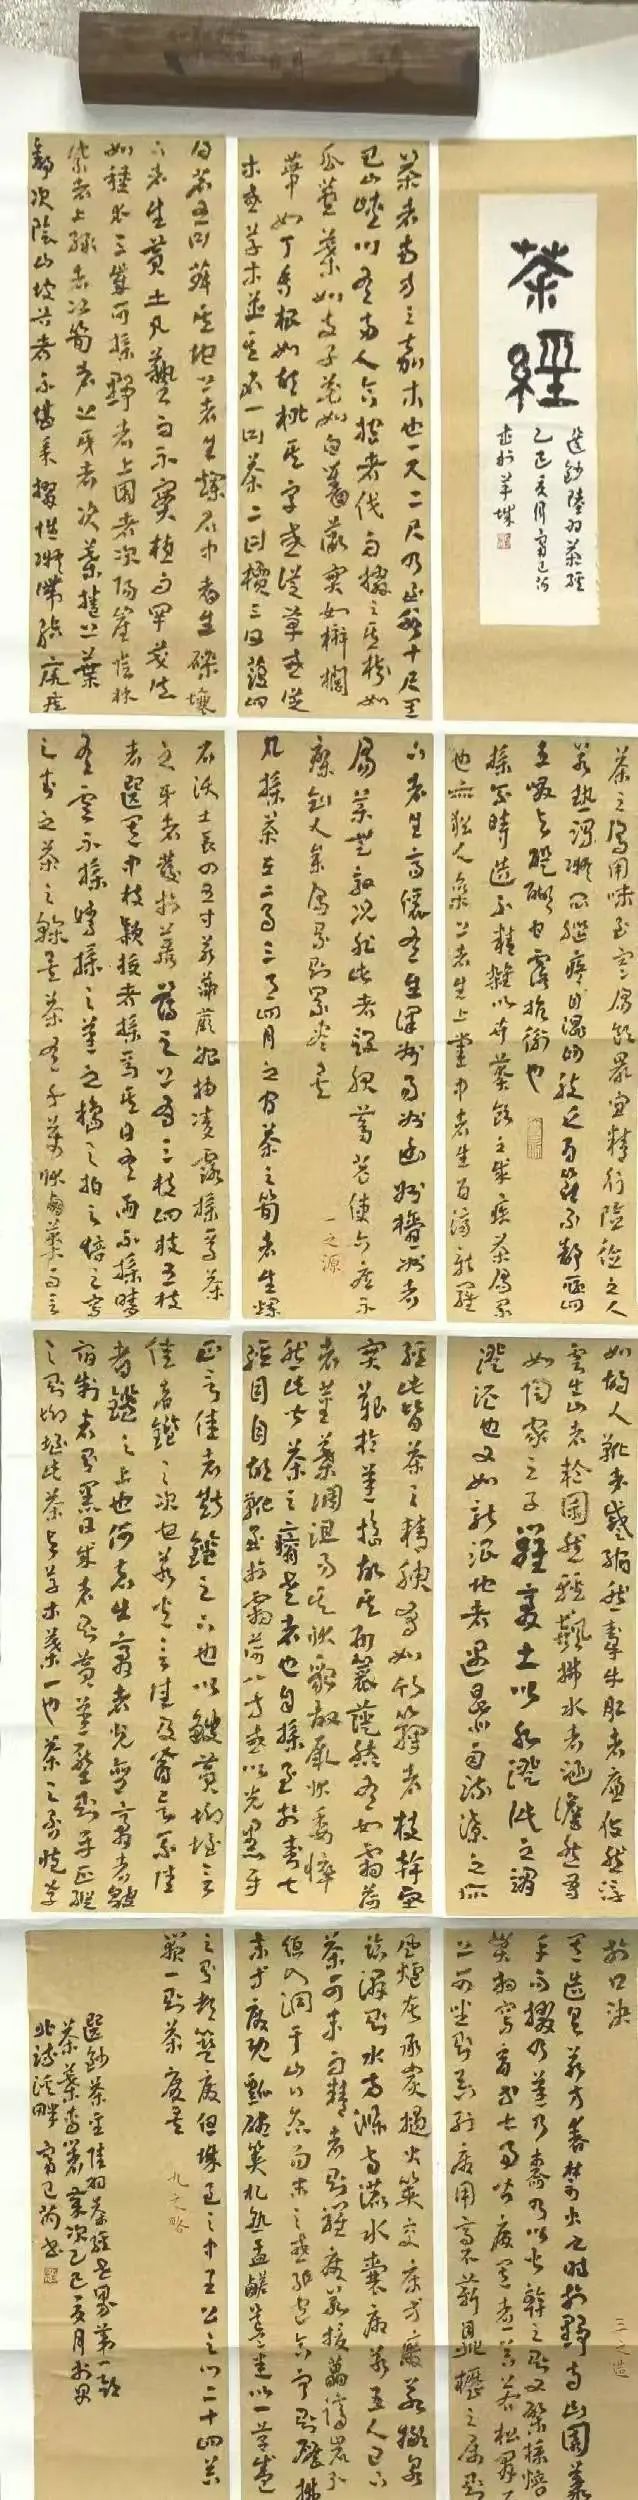 茶經
選鈔陸羽茶經
茶者南方之嘉木也一尺二尺乃至數十尺其
巴山峽川有兩人合抱者伐而掇之其樹如
瓜蘆葉如支子花如白薔薇實如栟櫚
蒂如丁香根如胡桃其字或從草或從
木或草木並其名一曰茶二曰檟三曰蔎四
曰茗五曰荈其地上者生爛石中者生礫壤
下者生黃土凡藝而不實植而罕茂法
如種瓜三歲可採野者上園者次陽崖陰林
紫者上綠者次筍者上牙者次葉捲上葉
舒次陰山坡谷者不堪采掇性凝滯結瘕疾
茶之為用味至寒為飲最宜精行儉德之人
若熱渴凝悶腦疼目澀四肢乏百節不舒聊四
五啜與醍醐甘露抗衡也
採不時造不精雜以卉莽飲之成疾茶為累
也亦猶人參上者生上黨中者生百濟新羅
下者生高麗有生澤州易州幽州檀州者
為藥無效況非此者設服薺苨使六疾不
瘳知人參為累則茶累盡矣
一之源
凡採茶在二月三月四月之間茶之筍者生爛
石沃土長四五寸若薇蕨始抽凌露採焉茶
之牙者發於叢薄之上有三枝四枝五枝
者選其中枝穎拔者採焉其日有雨不採晴
有雲不採晴採之蒸之搗之拍之焙之穿
之封之茶之乾矣茶有千萬狀鹵莽而言
如胡人靴者蹙縮然犎牛臆者廉襜然浮
雲出山者輪囷然輕飆拂水者涵澹然有
如陶家之子羅膏土以水澄泚之謂
澄泥也又如新治地者遇暴雨流潦之所
經此皆茶之精腴有如竹籜者枝幹堅
實艱於蒸搗故其形籭簁然有如霜荷
者莖葉凋沮易其狀貌故厥狀委悴
然此皆茶之瘠老者也自採至於封七
經目自胡靴至於霜荷八等或以光黑平
正言佳者斯鑒之下也以皺黃坳垤言
佳者鑒之次也若皆言佳及皆言不佳
者鑒之上也何者出膏者光含膏者皺
宿制者則黑日成者則黃蒸壓則平正縱
之則坳垤此茶與草木葉一也茶之否臧存
於口訣
三之造
其造具若方春禁火之時於野寺山園叢
手而掇乃蒸乃舂乃以火乾之則又棨撲焙
貫棚穿育等七事皆廢其煮器若松間石
上可坐則具列廢用槁薪鼎櫪之屬則
風爐灰承炭撾火筴交床等廢若瞰泉
臨澗則水方滌方漉水囊廢若五人已下
茶可末而精者則羅廢若援藟躋岩引
絙入洞于山口炙而末之或紙包合貯則碾拂
末等廢既瓢碗筴札熟盂鹾簋悉以一筥盛
之則都籃廢但城邑之中王公之門二十四器
闕一則茶廢矣
九之略
選鈔茶聖陸羽茶經世界第一部
茶葉專著歲次乙巳亥月於